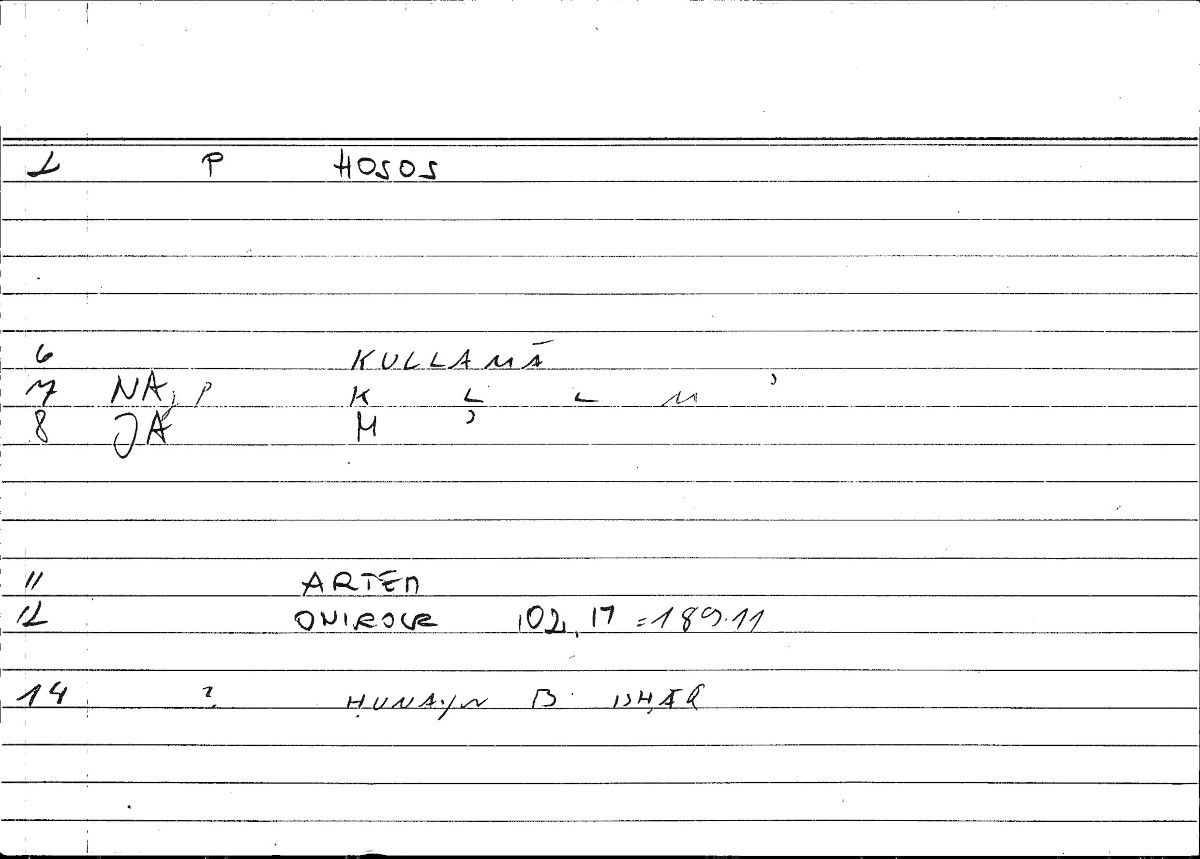 1 P HOSOS
6 KULLAMĀ
7 NA, P K L L M ʾ
8 JA M ʾ
11 ARTEM
12 ONIROCR 102,17 = 189.11
14 ? ḤUNAYN B. ISḤĀQ